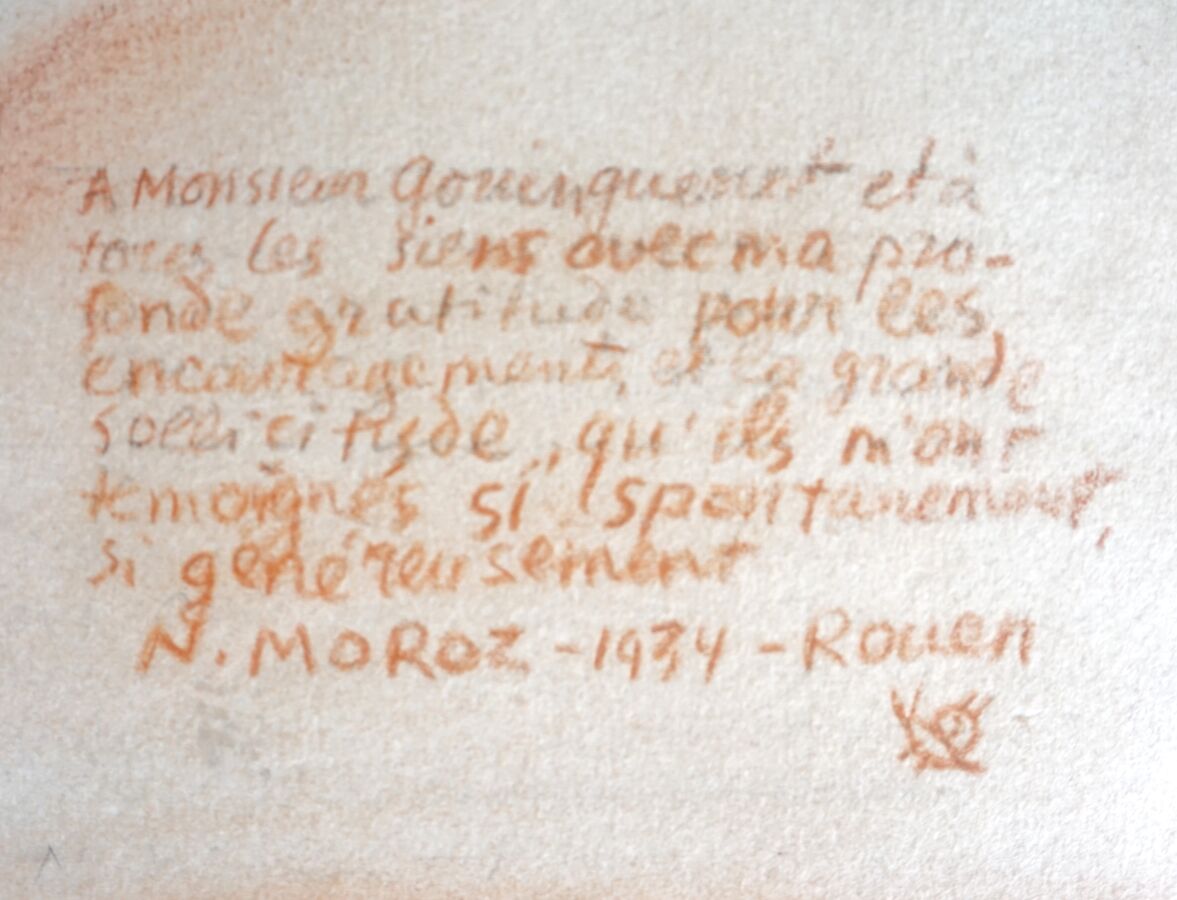 A Monsieur Gouinguenet et à
tous les siens avec ma pro-
fonde gratitude pour les
encouragements et la grande
sollicitude, qu'ils m'ont
temoignés si spontanement,
si genéreusement
N. MOROZ - 1934 - Rouen